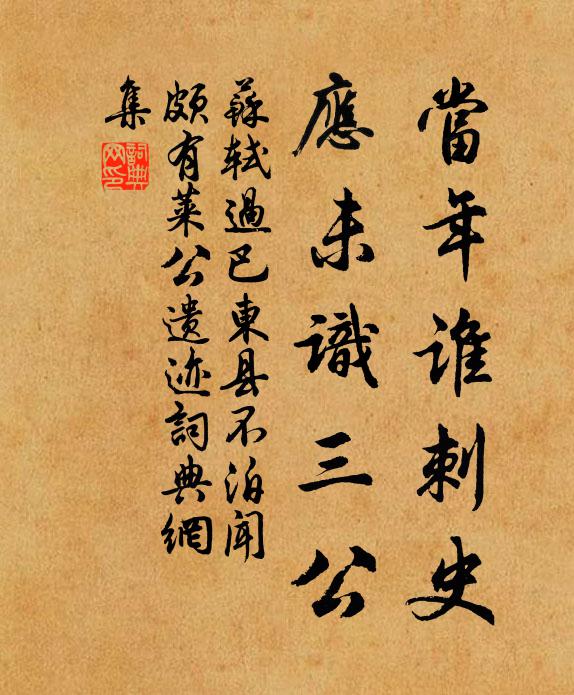 當年誰刺史
應未識三公
蘇軾過巴東县不泊聞
頗有萊公遗迹詞典網
集
詞典網印